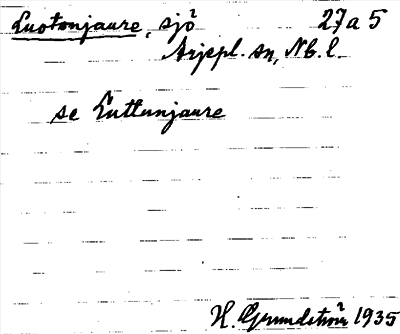 Luotonjaure, sjö 27a5
Arjepl. sn, Nb. l.
se Luttunjaure
H. Grundström 1935